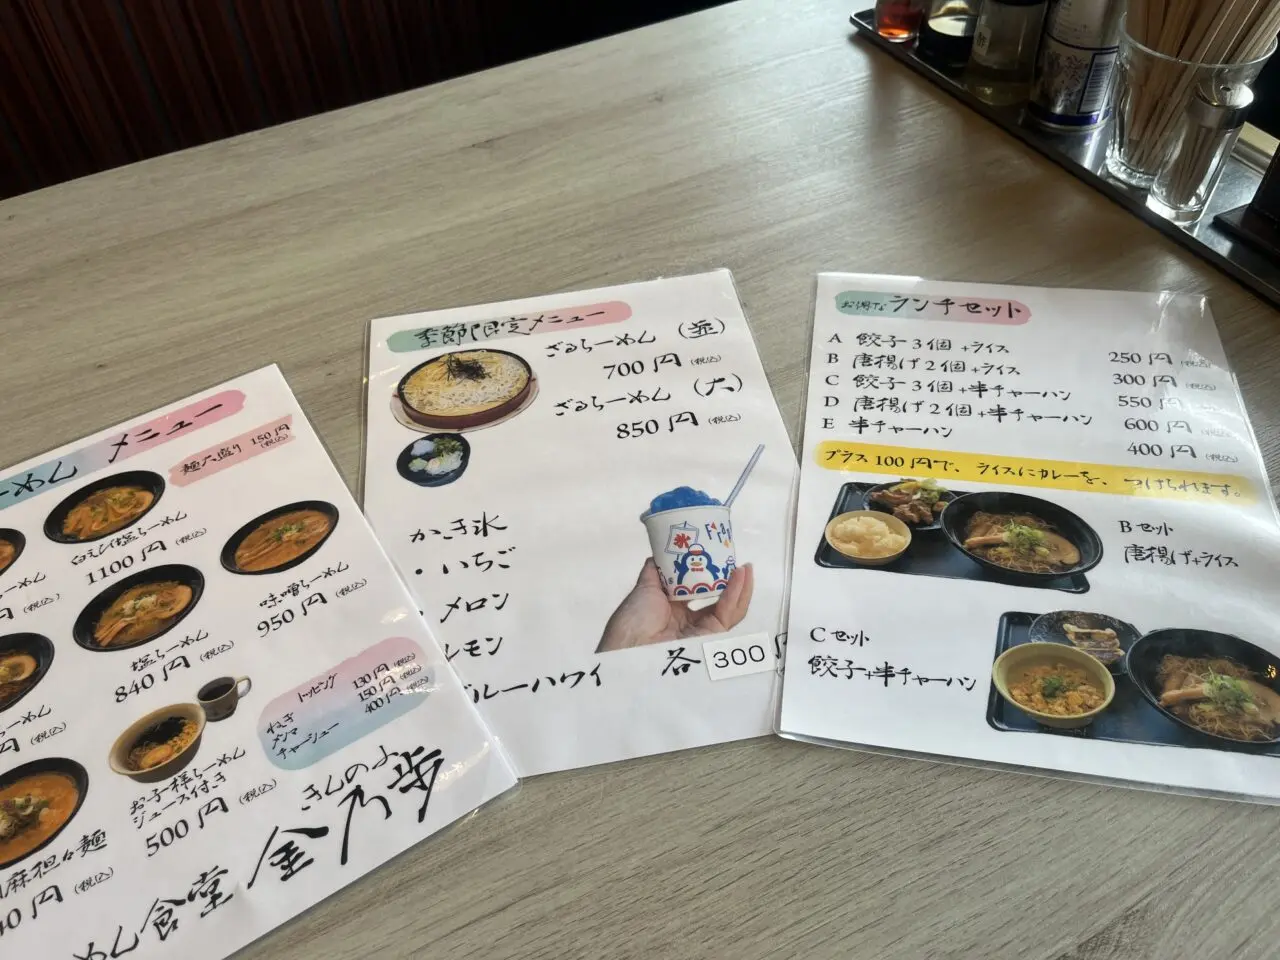 めん メニュー
麺大盛り 150円
(税込)
白えび塩らーめん
1100円 (税込)
味噌らーめん
950円 (税込)
塩らーめん
840円 (税込)
トッピング
ねぎ 130円 (税込)
メンマ 150円 (税込)
チャーシュー 400円 (税込)
お子様らーめん
ジュース付き
500円 (税込)
麻担々麺
円 (税込)
めん食堂 金乃歩
きんのふ
季節限定メニュー
ざるらーめん (並)
700円 (税込)
ざるらーめん (大)
850円 (税込)
かき氷
・いちご
・メロン
レモン
ブルーハワイ 各 300円
氷
お得な ランチセット
A 餃子3個+ライス 250円 (税込)
B 唐揚げ2個+ライス 300円 (税込)
C 餃子3個+半チャーハン 550円 (税込)
D 唐揚げ2個+半チャーハン 600円 (税込)
E 半チャーハン 400円 (税込)
プラス100円で、ライスにカレーを、つけられます。
Bセット
唐揚げ+ライス
Cセット
餃子+半チャーハン